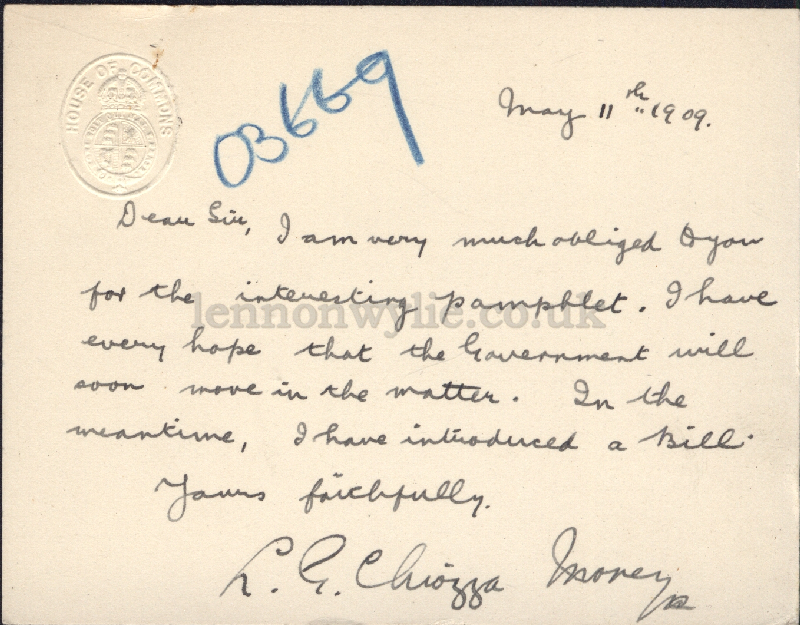 HOUSE OF COMMONS
03669
May 11th 1909.
Dear Sir,
I am very much obliged to you
for the interesting pamphlet. I have
lennonwylie.co.uk
every hope that the Government will
soon move in the matter. In the
meantime, I have introduced a Bill.
Yours faithfully.
L. G. Chiozza Money